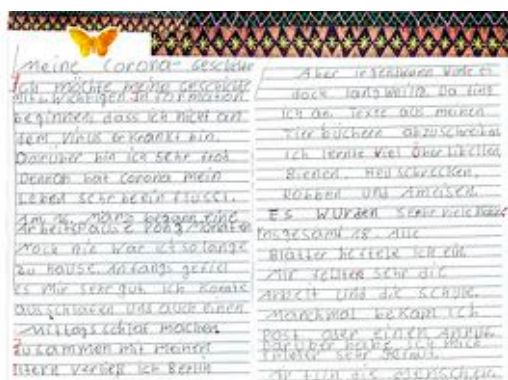 Meine Corona-Geschichte
Ich möchte meine Geschichte
mit wichtigen Information
beginnen, dass ich nicht an
dem Virus erkrankt bin.
Darüber bin ich sehr froh
Dennoch hat Corona mein
Leben sehr beeinflusst.
Am 16. März begann eine
Arbeitspause von Monaten
Noch nie war ich so lange
zu Hause. Anfangs gefiel
es mir sehr gut. Ich konnte
ausschlafen und auch einen
Mittagsschlaf machen.
Zusammen mit meinen
Eltern verließ ich Berlin
Aber irgendwann wurde es
doch langweilig. Da fing
ich an, Texte aus meinen
Tierbüchern abzuschreiben
Ich lernte viel über Libellen,
Bienen, Heuschrecken,
Robben und Ameisen.
Es wurden sehr viele
Insgesamt 18. Alle
Blätter heftete ich ein.
Mir fehlten sehr die
Arbeit und die Schule.
Manchmal bekam ich
Post oder einen Anruf.
Darüber habe ich mich
sehr
Menschen